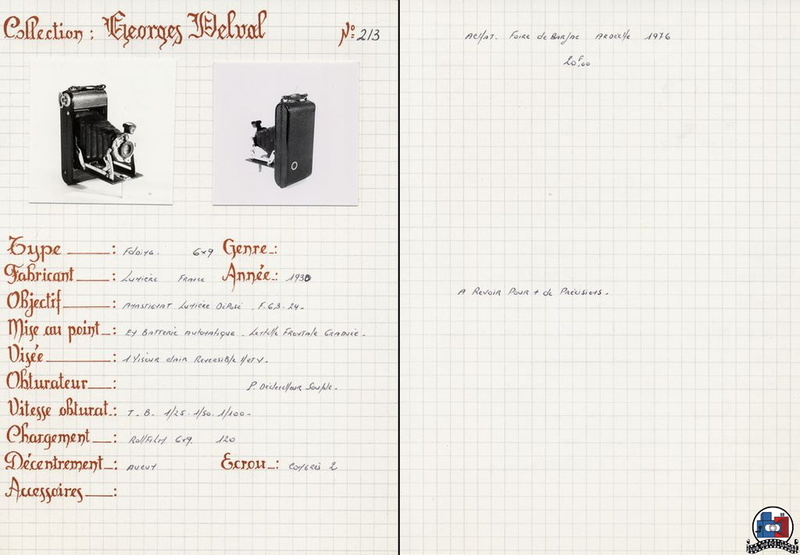 Collection : Georges Delval N°: 213
Type : Folding. 6x9 Genre :
Fabricant : Lumière France Année : 1930
Objectif : Anastigmat Lumière Déposé . F. 6.3 .
Mise au point : Automatique . Lentille Frontale Graduée .
Visée : 1 Viseur clair Reversible H et V .
Obturateur : P. Déclencheur Souple .
Vitesse obturat. : T . B . 1/25 . 1/50 . 1/100 .
Chargement : Rollfilm 6x9 120
Décentrement : Aucun Ecrou : Congrès 2
Accessoires :
Achat . Foire de Barjac Ardèche 1976
20F,00
A Revoir Pour + de Précisions .